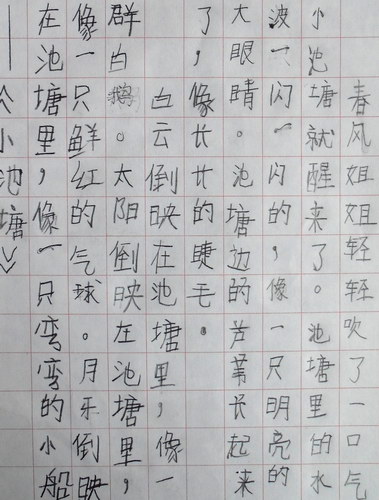 春风姐姐轻轻吹了一口气
小池塘就醒来了。池塘里的水
波一闪一闪的，像一只明亮的
大眼睛。池塘边的芦苇长起来
了，像长长的睫毛。
白云倒映在池塘里，像一
群白鹅。太阳倒映在池塘里，
像一只鲜红的气球。月牙倒映
在池塘里，像一只弯弯的小船
——《小池塘》